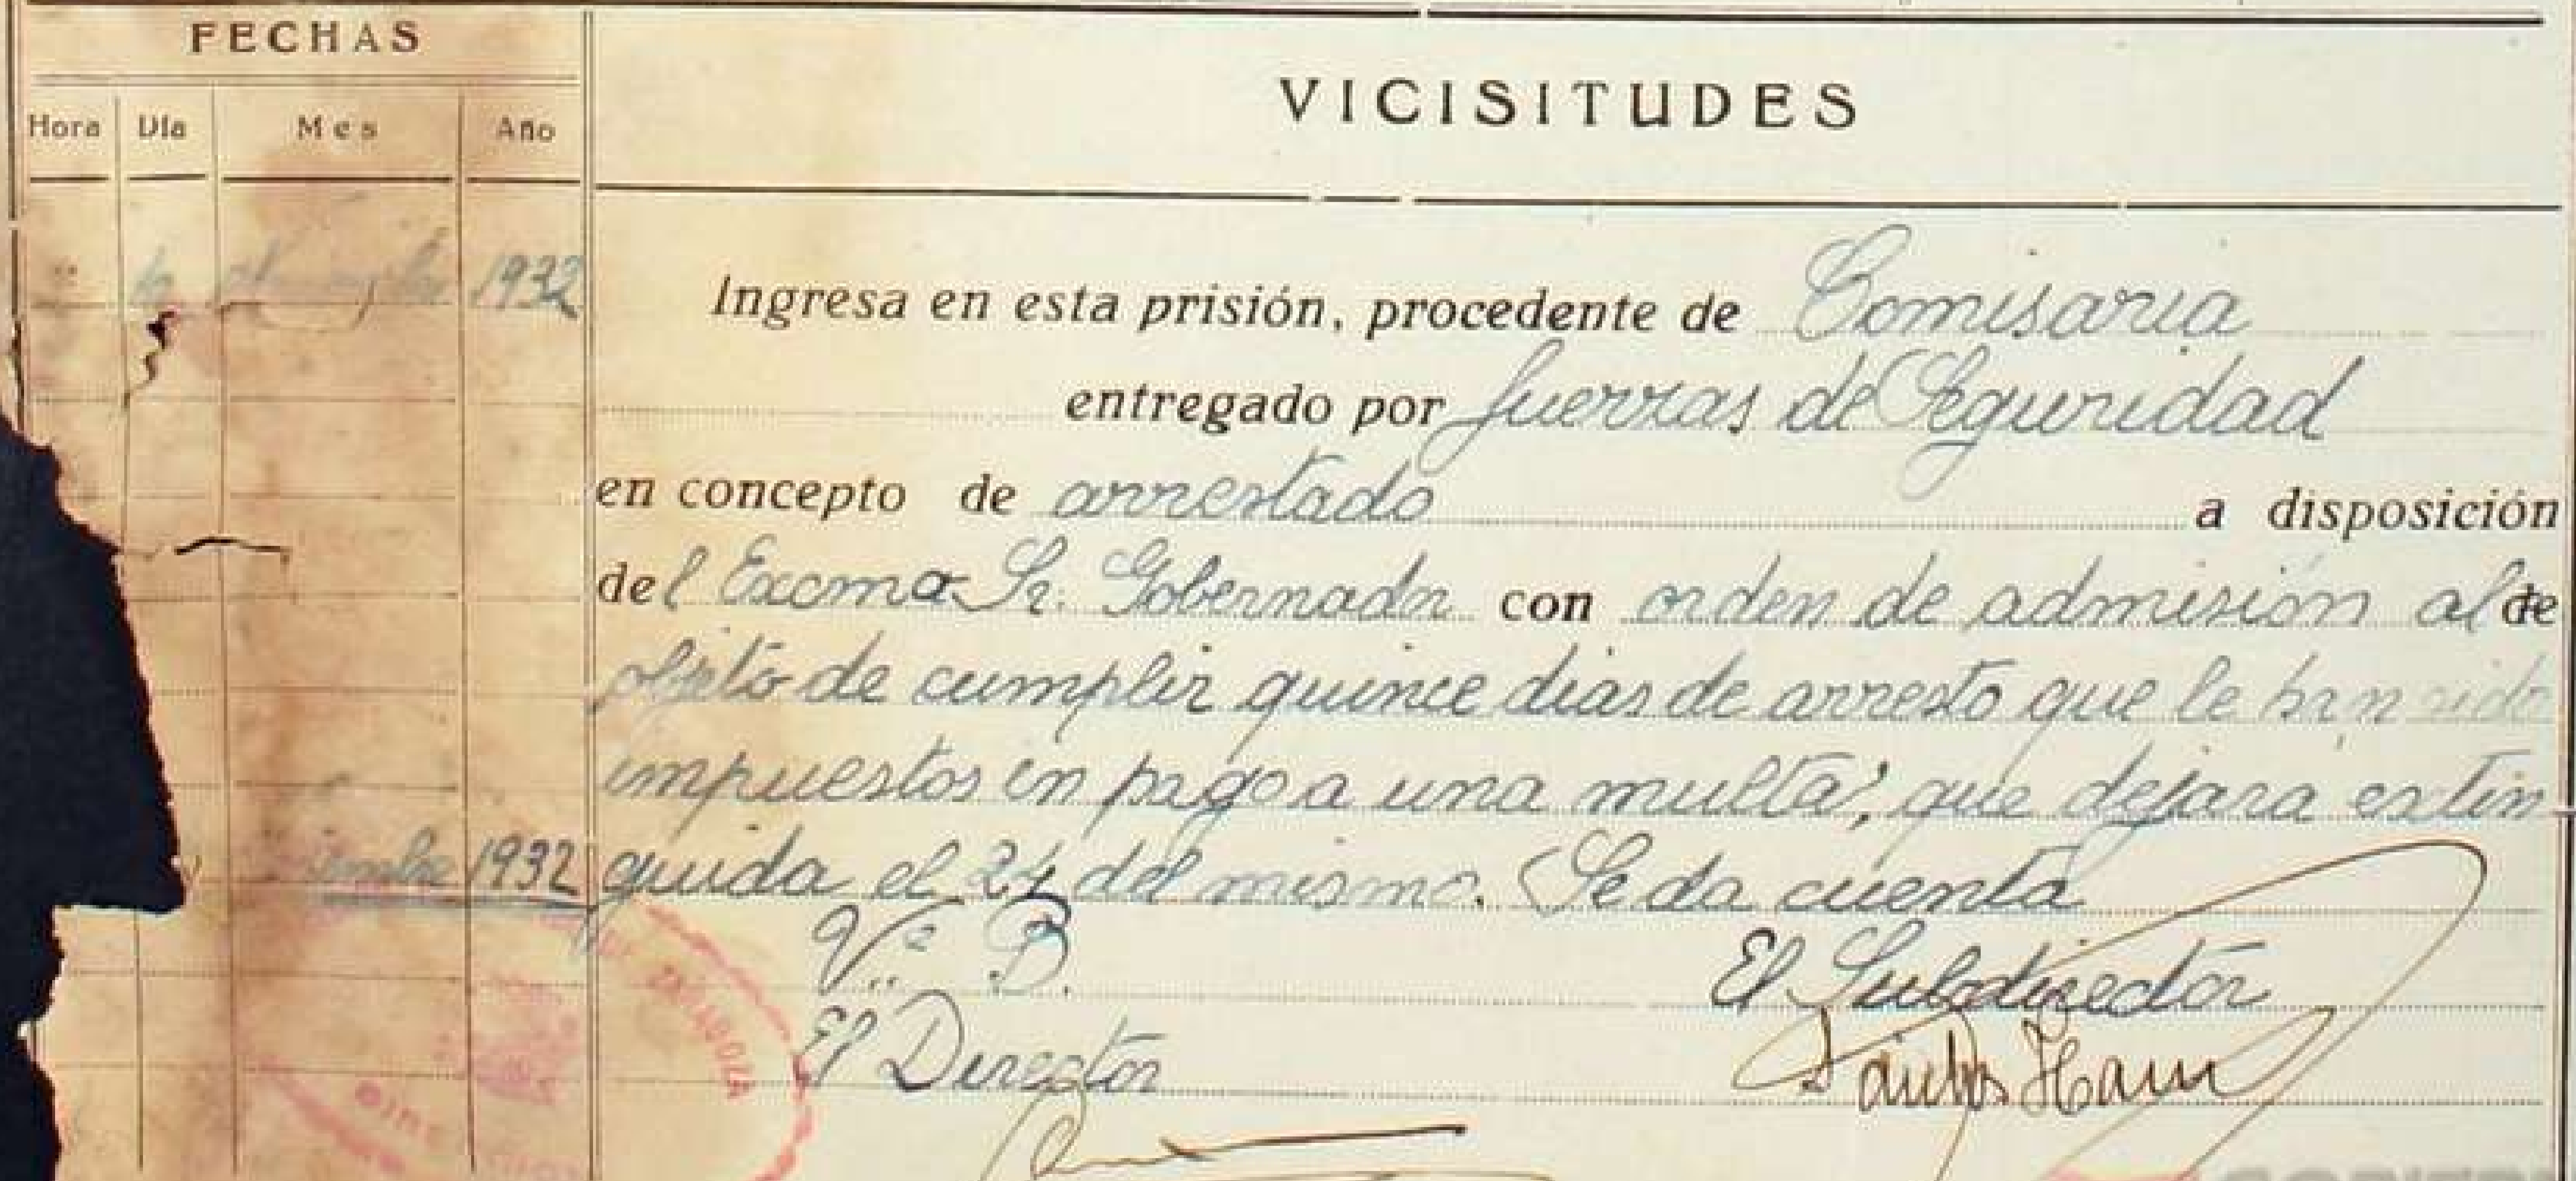 FECHAS
VICISITUDES
Hora Día Mes Año
1932 Ingresa en esta prisión, procedente de Comisaria
entregado por fuerzas de Seguridad
en concepto de arrestado a disposición
del Excmo Sr. Gobernador con orden de admisión al de
objeto de cumplir quince dias de arresto que le han sido
impuestos en pago a una multa, que dejará extin
1932 guida el 24 del mismo. Se da cuenta
Vº B.
El Subdirector
El Director
ZARAGOZA